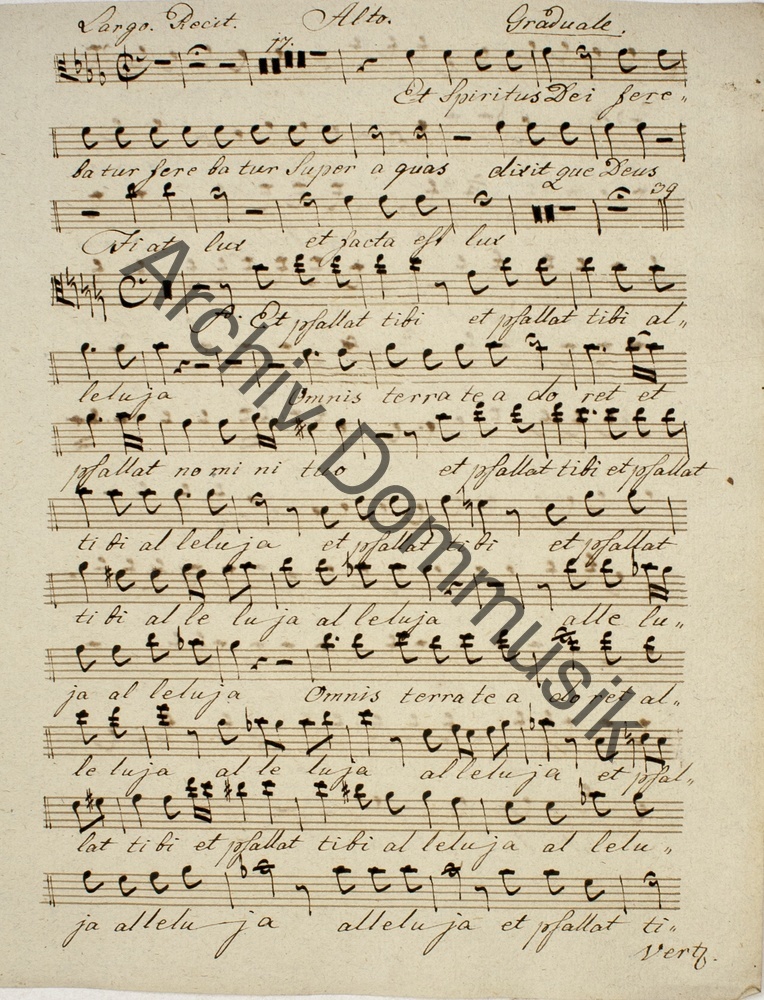 Largo. Recit. Alto. Graduale.
17.
Et Spiritus Dei fere„
ba tur fere ba tur Super a quas dixit que Deus
39
Fi at lux et facta est lux
Et psallat tibi et psallat tibi al„
leluja Omnis terra te a do ret et
psallat no mi ni tuo et psallat tibi et psallat
ti bi al leluja et psallat tibi et psallat
ti bi al le lu ja al leluja alle lu„
ja al leluja Omnis terra te a do ret al„
le luja al le luja alleluja et psal„
lat ti bi et psallat tibi al leluja al lelu„
ja allelu ja alleluja et psallat ti„
Vert.
Archiv Dommusik